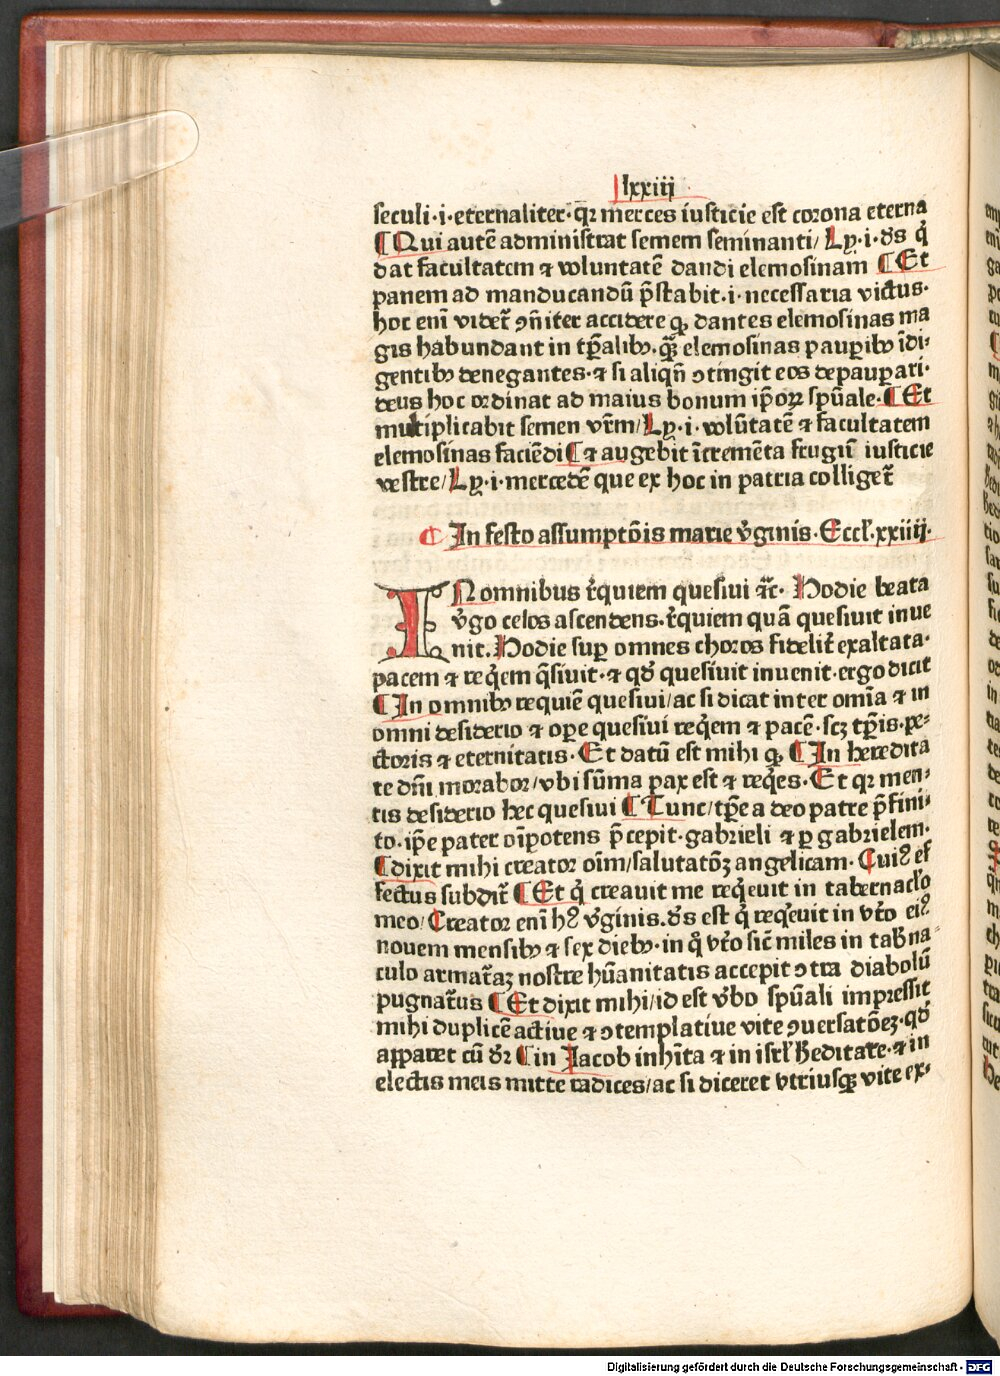 lxxiii
seculi·i·eternaliter·qꝛ merces iusticie est corona eterna
¶ Qui autē administrat semem seminanti/ Ly·i·ds̄ q̇
dat facultatem ⁊ voluntatē dandi elemosinam ¶ Et
panem ad manducandū p̄stabit·i·necessaria victus·
hoc eni᷑ videt᷑ ꝯn̄iter accidere ꝙ dantes elemosinas ma
gis habundant in tꝑalibꝰ·ꝙ̄ elemosinas pauꝑibꝰ īdi⸗
gentibꝰ denegantes·⁊ si aliqn̄ ꝯtingit eos depauꝑari·
deus hoc ordinat ad maius bonum ip̄oꝝ spūale·¶ Et
multiplicabit semen vr̄m/ Ly·i·volūtatē ⁊ facultatem
elemosinas faciēdi ¶ ⁊ augebit īcremēta frugū iusticie
vestre/ Ly·i·mercedē que ex hoc in patria colliget᷑
¶ In festo assumptōis marie v̄ginis·Eccl̄·xxiiij·
IN omnibus r̄quiem quesiui ⁊c̄· Hodie beata
v̄go celos ascendens·r̄quiem quā quesiuit inue
nit. Hodie suꝑ omnes choros fidelit᷑ exaltata·
pacem ⁊ req̇em q̄siuit·⁊ qd̄ quesiuit inuenit·ergo dicit
¶ In omnibꝰ requiē quesiui/ac si dicat inter omīa ⁊ in
omni desiderio ⁊ oꝑe quesiui req̇em ⁊ pacē·scꝫ tꝑis·pe⸗
ctoris ⁊ eternitatis· Et datū est mihi ꝙ ¶ In heredita
te dn̄i morabor/vbi sūma pax est ⁊ req̇es· Et qꝛ men⸗
tis desiderio hec quesiui ¶ Tunc/tꝑe a deo patre p̄fini⸗
to·ip̄e pater oīpotens p̄cepit·gabrieli ⁊ ꝑ gabrielem·
¶ dixit mihi creator oīm/salutatōꝫ angelicam· Cuiꝰ ef
fectus subdit᷑ ¶ Et q̇ creauit me req̇euit in tabernacl̄o
meo/ Creator eni᷑ hꝰ v̄ginis·ds̄ est q̇ req̇euit in vt̄o eiꝰ
nouem mensibꝰ ⁊ sex diebꝰ·in q̇ vt̄o sic̄ miles in tab̄na⸗
culo armat᷑aꝫ nostre hūanitatis accepit ꝯtra diabolū
pugnat᷑us ¶ Et dixit mihi/id est v̄bo spūali impressit
mihi duplicē actiue ⁊ ꝯtemplatiue vite ꝯuersatōeꝫ·qd̄
apparet cū dr̄ ¶ in Jacob inhīta ⁊ in isrl̄ h̄editare·⁊ in
electis meis mitte radices/ac si diceret vtriusqꝫ vite ex⸗
Digitalisierung gefördert durch die Deutsche Forschungsgemeinschaft · DFG